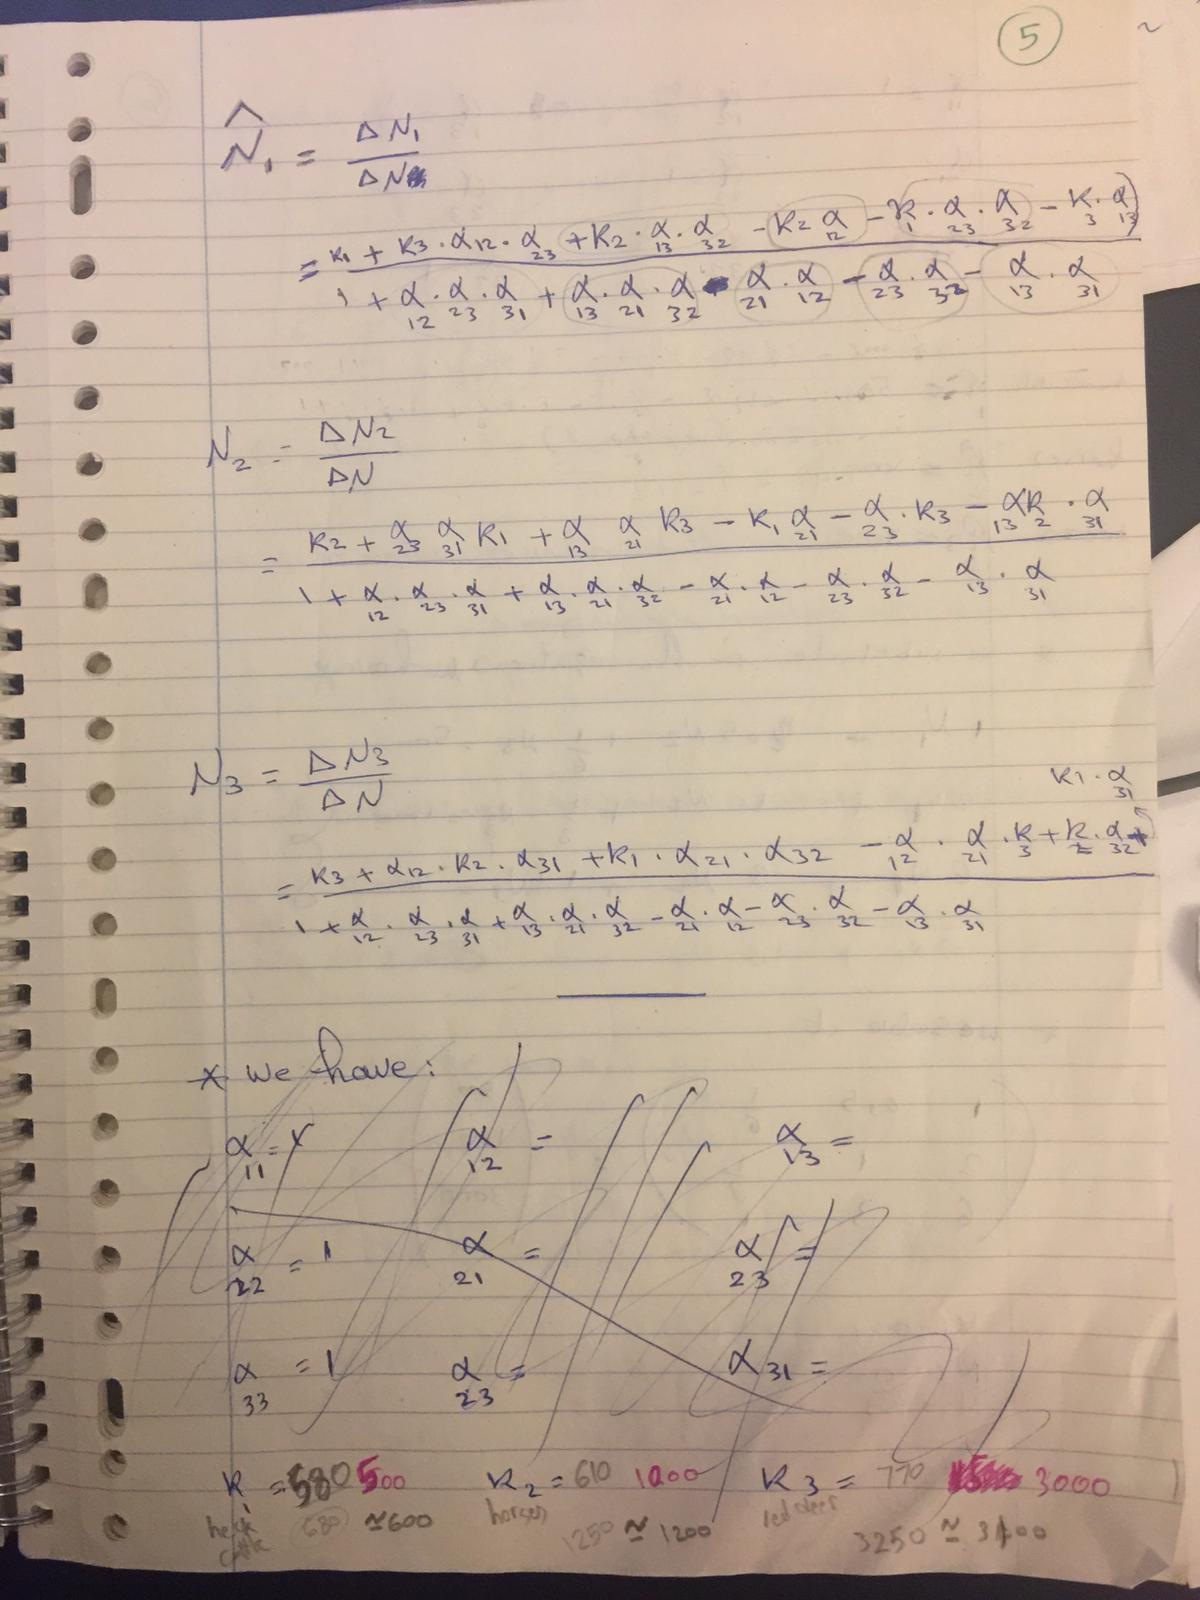 5
N̂₁ = ΔN₁ / ΔN
= K₁ + K₃·α₁₂·α₂₃ + K₂·α₁₃·α₃₂ - K₂ α₁₂ - K₁·α₂₃·α₃₂ - K₃·α₁₃
1 + α₁₂·α₂₃·α₃₁ + α₁₃·α₂₁·α₃₂ - α₂₁·α₁₂ - α₂₃·α₃₂ - α₁₃·α₃₁
N₂ = ΔN₂ / ΔN
= K₂ + α₂₃ α₃₁ K₁ + α₁₃ α₂₁ K₃ - K₁ α₂₁ - α₂₃·K₃ - α₁₃ K₂·α₃₁
1 + α₁₂·α₂₃·α₃₁ + α₁₃·α₂₁·α₃₂ - α₂₁·α₁₂ - α₂₃·α₃₂ - α₁₃·α₃₁
N₃ = ΔN₃ / ΔN
K₁·α₃₁
= K₃ + α₁₂·K₂·α₃₁ + K₁·α₂₁·α₃₂ - α₁₂·α₂₁·K₃ + K₂·α₃₂ +
1 + α₁₂·α₂₃·α₃₁ + α₁₃·α₂₁·α₃₂ - α₂₁·α₁₂ - α₂₃·α₃₂ - α₁₃·α₃₁
* we have:
α₁₁ = 1 α₁₂ = α₁₃ =
α₂₂ = 1 α₂₁ = α₂₃ =
α₃₃ = 1 α₂₃ = α₃₁ =
K₁ = 580 500 K₂ = 610 1000 K₃ = 770 3000
heck cattle 680 ≈600 horses 1250 ≈ 1200 red deer 3250 ≈ 3100